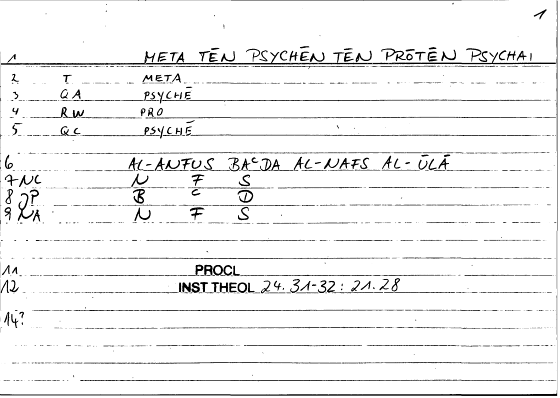 1
1 META TĒN PSYCHĒN TĒN PRŌTĒN PSYCHAI
2 T META
3 QA PSYCHĒ
4 RW PRO
5 QC PSYCHĒ
6 AL-ANFUS BAʿDA AL-NAFS AL-ŪLĀ
7 NC N F S
8 JP B ʿ D
9 NA N F S
11 PROCL
12 INST THEOL 24.31-32: 21.28
14?